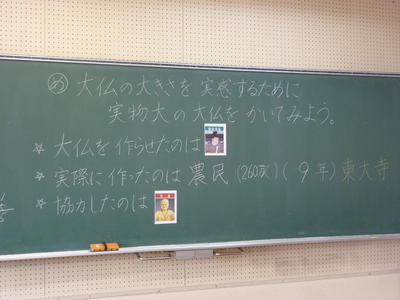 め 大仏の大きさを実感するために
実物大の大仏をかいてみよう。
☆ 大仏を作らせたのは
☆ 実際に作ったのは 農民(260万)(9年)東大寺
☆ 協力したのは